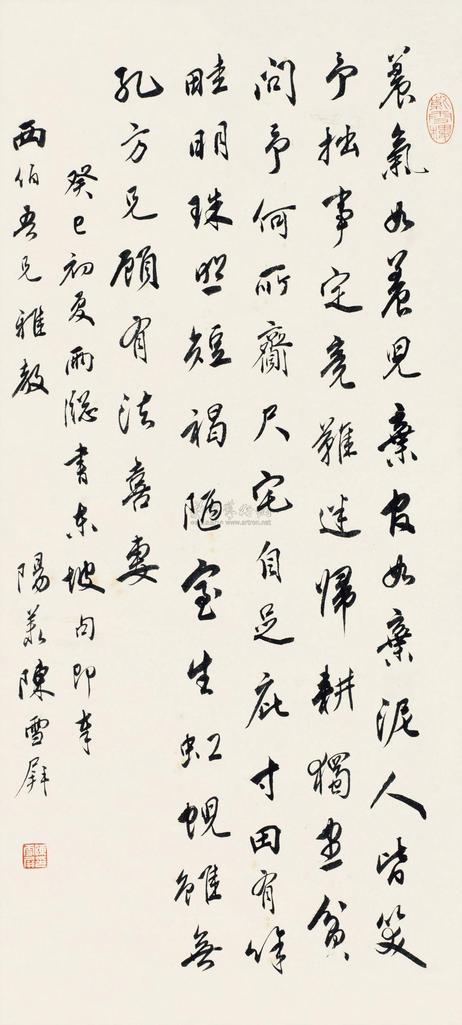 養氣如養兒棄官如棄泥人皆笑
予拙事定竟難迷歸耕獨患貧
問予何所齎尺宅自足庇寸田有餘
畦明珠照短褐陋室生虹蜺雖無
孔方兄顧有法喜妻
癸巳初夏雨牕書東坡句即奉
西伯吾兄雅教 陽羨陳雪屏
www.artron.net